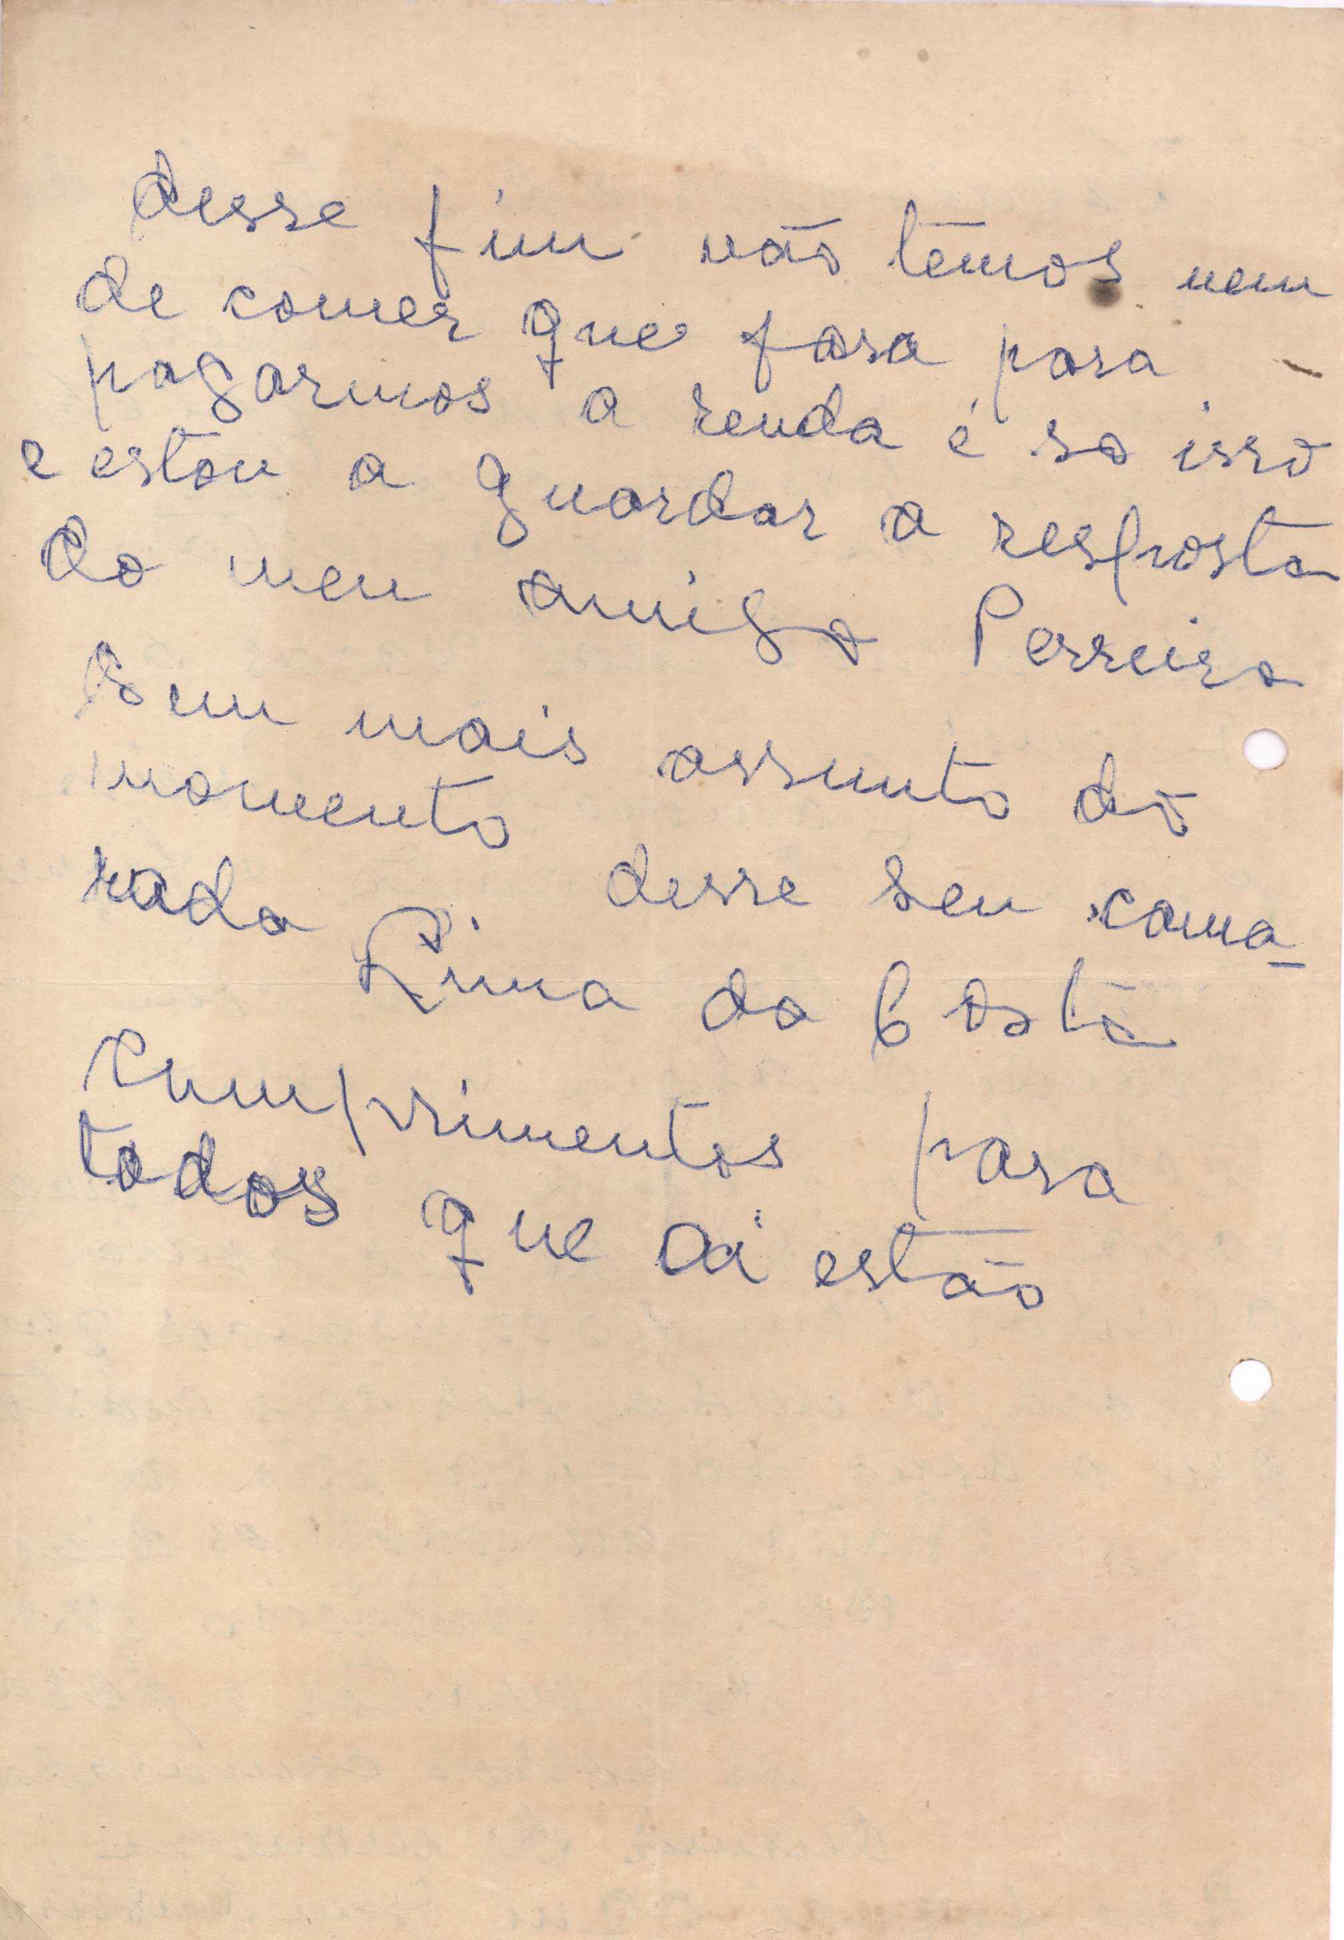 desse fim não temos nem
de comer que fara para
pagarmos a renda é so isso
e estou a guardar a resposta
do meu amigo Perreira
Sem mais assunto do
momento desse seu cama-
rada Lima da Costa
Cumprimentos para
todos que ai estão